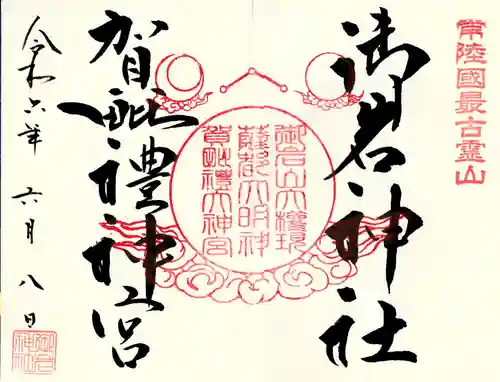 常陸國最古霊山
御岩神社
御岩山大権現
薩都大明神
賀毗禮大神宮
賀毗禮神宮
令和六年 六月 八日
御岩
神社